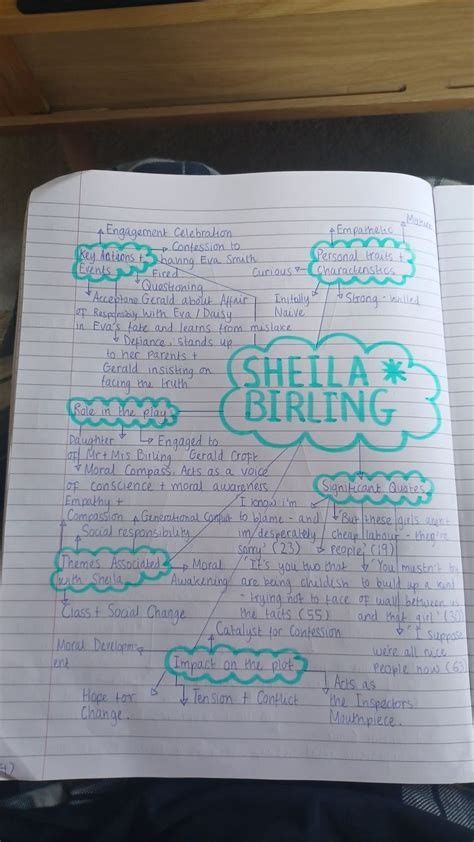 Engagement Celebration
Key Actions +
Events
Confession to
having Eva Smith
Fired
Questioning
Gerald about Affair
with Eva / Daisy
Acceptane
of Responsibly
in Eva's fate and learns from mistake
Defiance, stands up
to her parents +
Gerald insisting on
facing the truth
Empathetic
Mature
Personal traits +
Characteristics
Curious
Initally
Naive
Strong - willed
SHEILA *
BIRLING
Role in the play
Daughter
of Mr + Mrs Birling
Engaged to
Gerald Croft
Moral Compass, Acts as a voice
of conscience + moral awareness
Significant Quotes
I know i'm
to blame - and
i'm desperately
sorry' (23)
'But these girls aren't
cheap labour - they're
people' (19)
'It's you two that
are being childish
- trying not to face
the facts (55)
'You mustn't try
to build up a kind
of wall between us
and that girl'
'I suppose
we're all nice
people now
Empathy +
Compassion
Generational Conflict
Social responsibility
Themes Associated
with Sheila
Moral
Awakening
Class + Social Change
Catalyst for Confession
Impact on the plot
Moral Developm
ent
Hope for
Change.
Tension + Conflict
Acts as
the Inspectors
Mouthpiece.